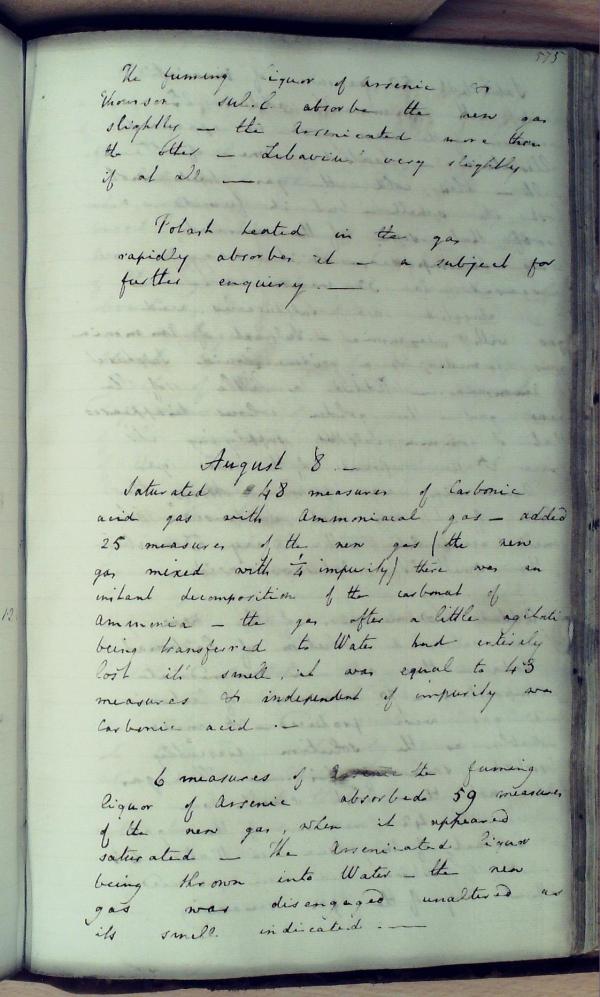 575
The fuming liquor of arsenic &
Thomson's sul.l. absorbe the new gas
slightly — the Arsenicated more than
the other — Libavius' very slightly
if at all —
Potash heated in the gas
rapidly absorbes it — a subject for
further enquiry. —
August 8 —
Saturated 48 measures of Carbonic
acid gas with Ammoniacal gas — added
25 measures of the new gas (the new
gas mixed with ¼ impurity) there was an
instant decomposition of the carbonat of
12
Ammonia — the gas after a little agitati
being transferred to Water had entirely
lost it's smell, it was equal to 43
measures & independent of impurity was
Carbonic acid. —
6 measures of the fuming
liquor of Arsenic absorbed 59 measures
of the new gas, when it appeared
saturated — The Arsenicated liquor
being thrown into Water — the new
gas was disengaged unaltered as
its smell indicated. —